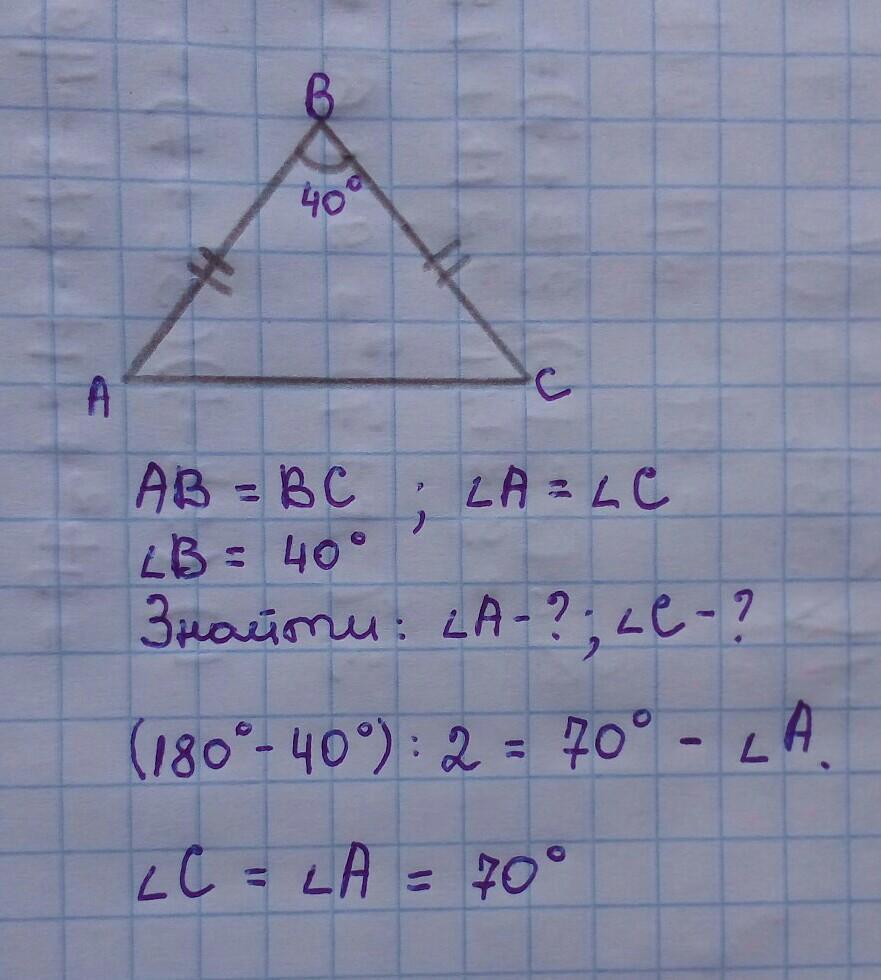 B
40°
A
C
AB = BC ; ∠A = ∠C
∠B = 40°
Знайти: ∠A - ?; ∠C - ?
(180° - 40°) : 2 = 70° - ∠A.
∠C = ∠A = 70°